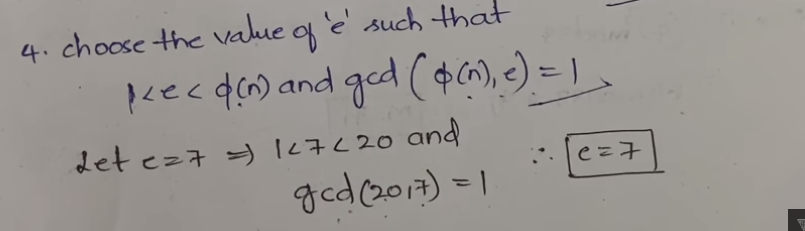 4. choose the value of 'e' such that
1<e<ϕ(n) and gcd (ϕ(n), e) = 1
Let e=7 ⇒ 1<7<20 and ∴ e=7
gcd(20,7) = 1